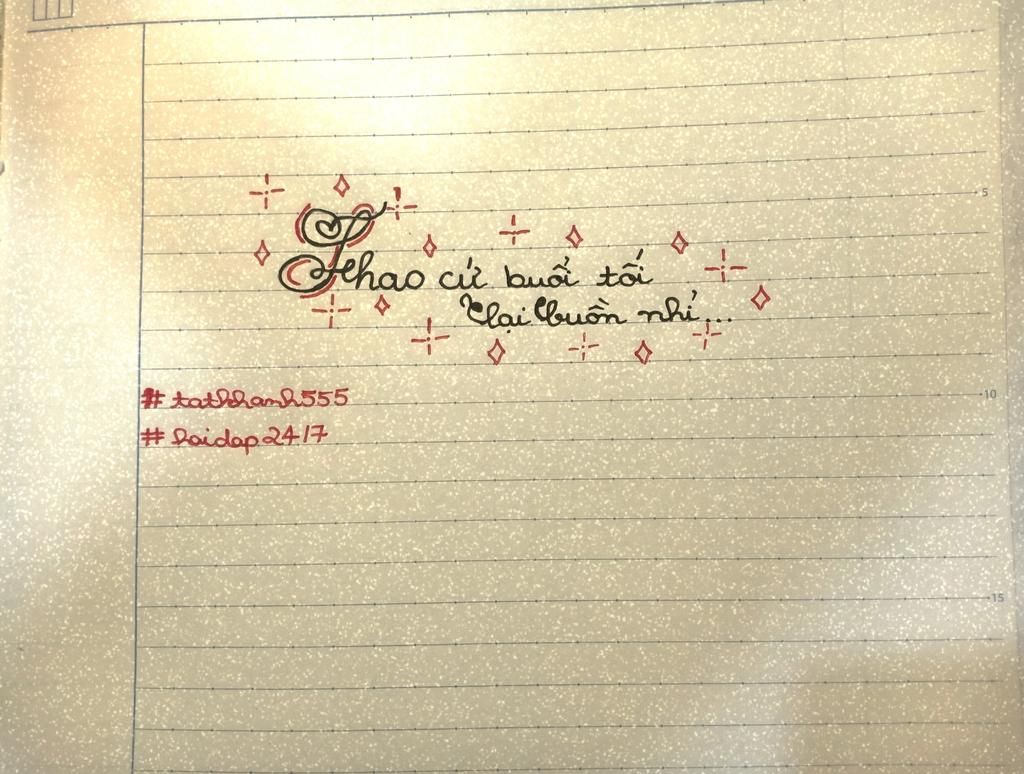 Thao cứ buổi tối
lại buồn nhỉ...
#tatkhanh555
#hoidap247
5
10
15